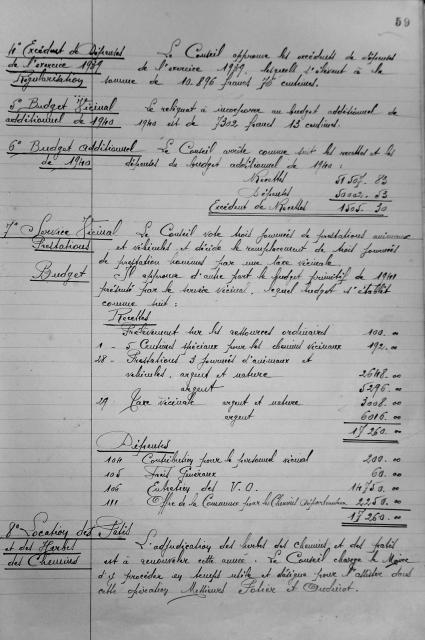 59
4° Excédent de Dépenses
de l'exercice 1939
Régularisation
Le Conseil approuve les excédents de dépenses
de l'exercice 1939, lesquels s'élèvent à la
somme de 10.896 francs 76 centimes.
5° Budget Vicinal
additionnel de 1940
Le reliquat à incorporer au budget additionnel de
1940 est de 7302 francs 13 centimes.
6° Budget additionnel
de 1940
Le Conseil arrête comme suit les recettes et les
dépenses du budget additionnel de 1940 :
Recettes 51507.83
Dépenses 50002.53
Excédent de Recettes 1505.30
7° Service Vicinal
Prestations
Le Conseil vote trois journées de prestations animaux
et véhicules et décide le remplacement de trois journées
de prestation hommes par une taxe vicinale.
Budget
Il approuve d'autre part le budget primitif de 1941
présenté par le service vicinal, lequel budget s'établit
comme suit :
Recettes
Prélèvement sur les ressources ordinaires 100.00
1 - 5 Centimes spéciaux pour les chemins vicinaux 192.00
28 - Prestations 3 journées d'animaux et
véhicules, argent et nature 2648.00
argent 5296.00
29 Taxe vicinale argent et nature 3008.00
argent 6016.00
17 260.00
Dépenses
104 Contribution pour le personnel vicinal 200.00
105 Frais Généraux 60.00
106 Entretien des V.O. 14750.00
111 Offre de la Commune pour les Chemins Départementaux 2250.00
17 260.00
8° Location des Patis
et des Herbes
des Chemins
L'adjudication des herbes des chemins et des patis
est à renouveler cette année. Le Conseil charge le Maire
d'y procéder en temps utile et désigne pour l'assister dans
cette opération Messieurs et